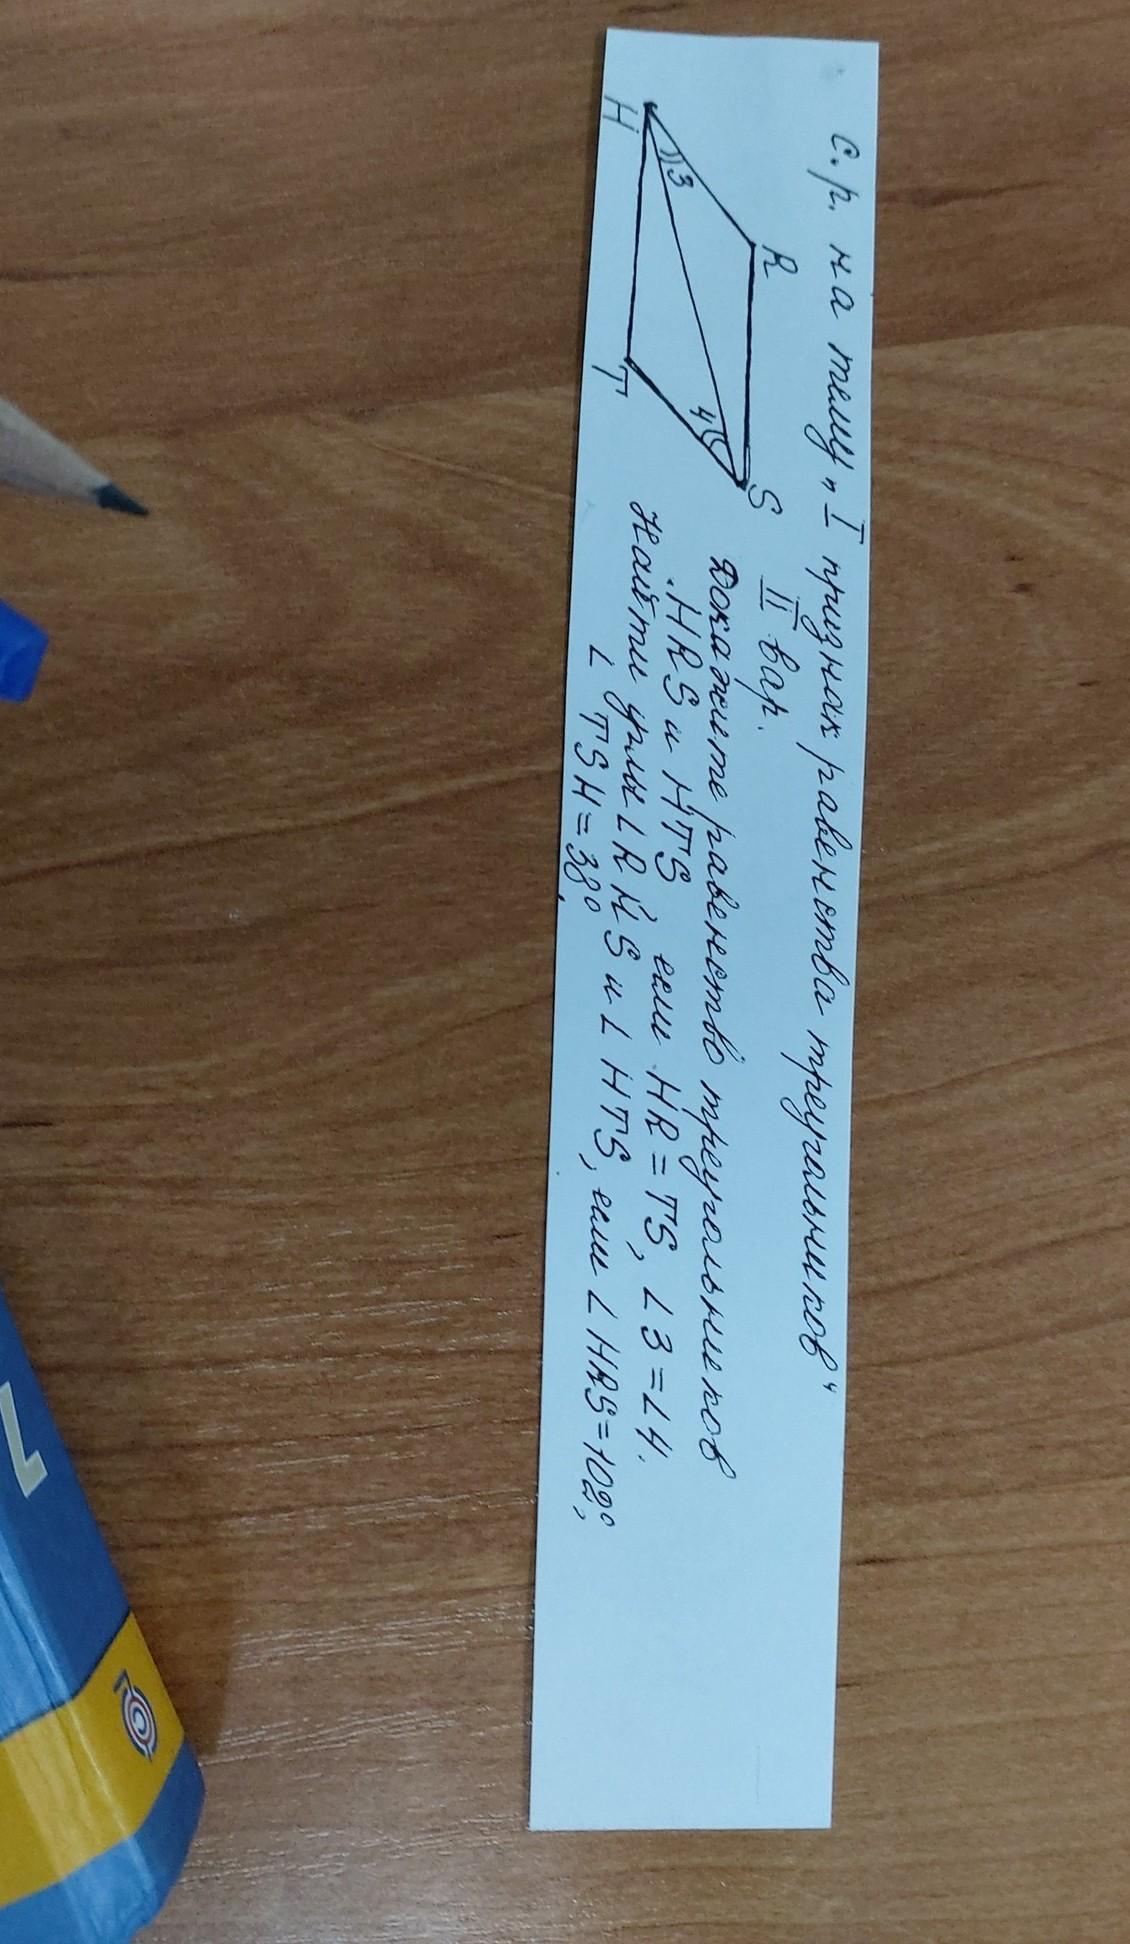 с.р. на тему „I признак равенства треугольников“
II вар.
Докажите равенство треугольников
HRS и HTS если HR = TS, ∠3 = ∠4.
Найти углы ∠RHS и ∠HTS, если ∠HRS = 102°,
∠TSH = 38°,
R
S
H
T
3
4
7